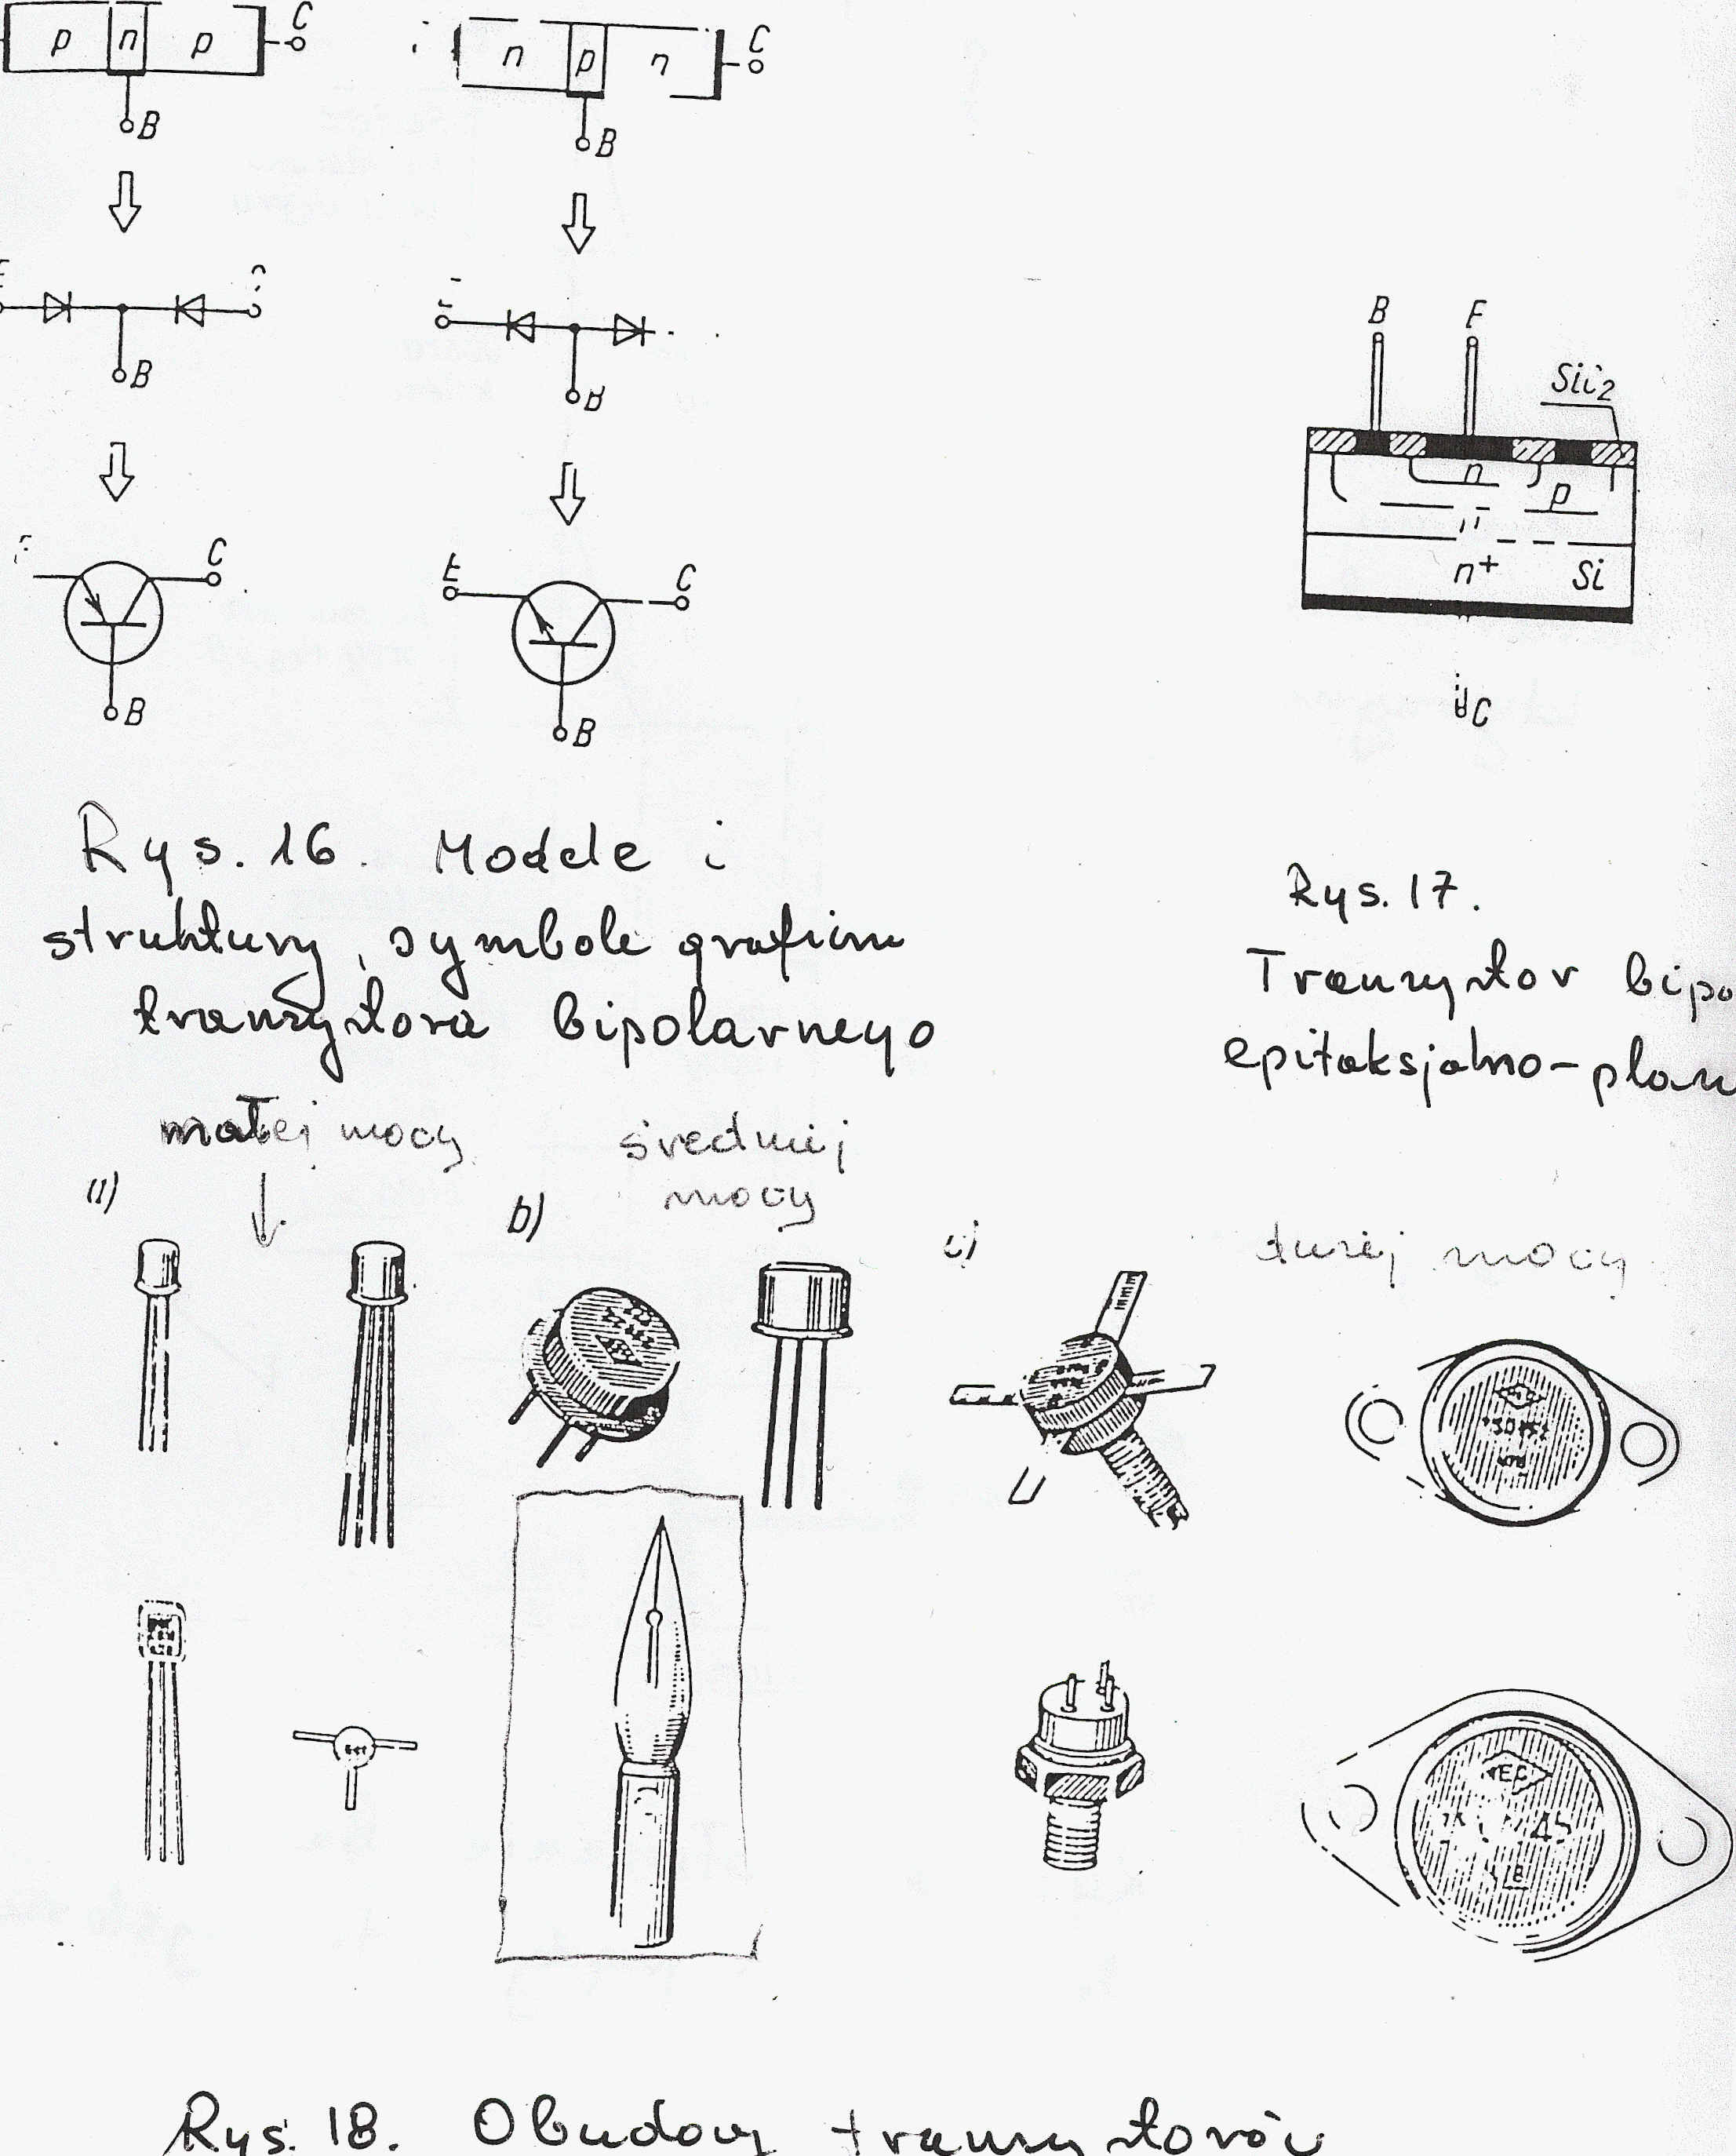 p n p C
n p n C
B
B
B
B
C
E C
B
B
B E
n
p
n+ Si
C
Rys. 16. Modele i
struktury, symbole graficzne
tranzystora bipolarnego
Rys. 17.
Tranzystor bipo
epitaksjalno-plan
małej mocy średniej
mocy
b)
dużej mocy
EC
B
Rys. 18. Obudowy tranzystorów